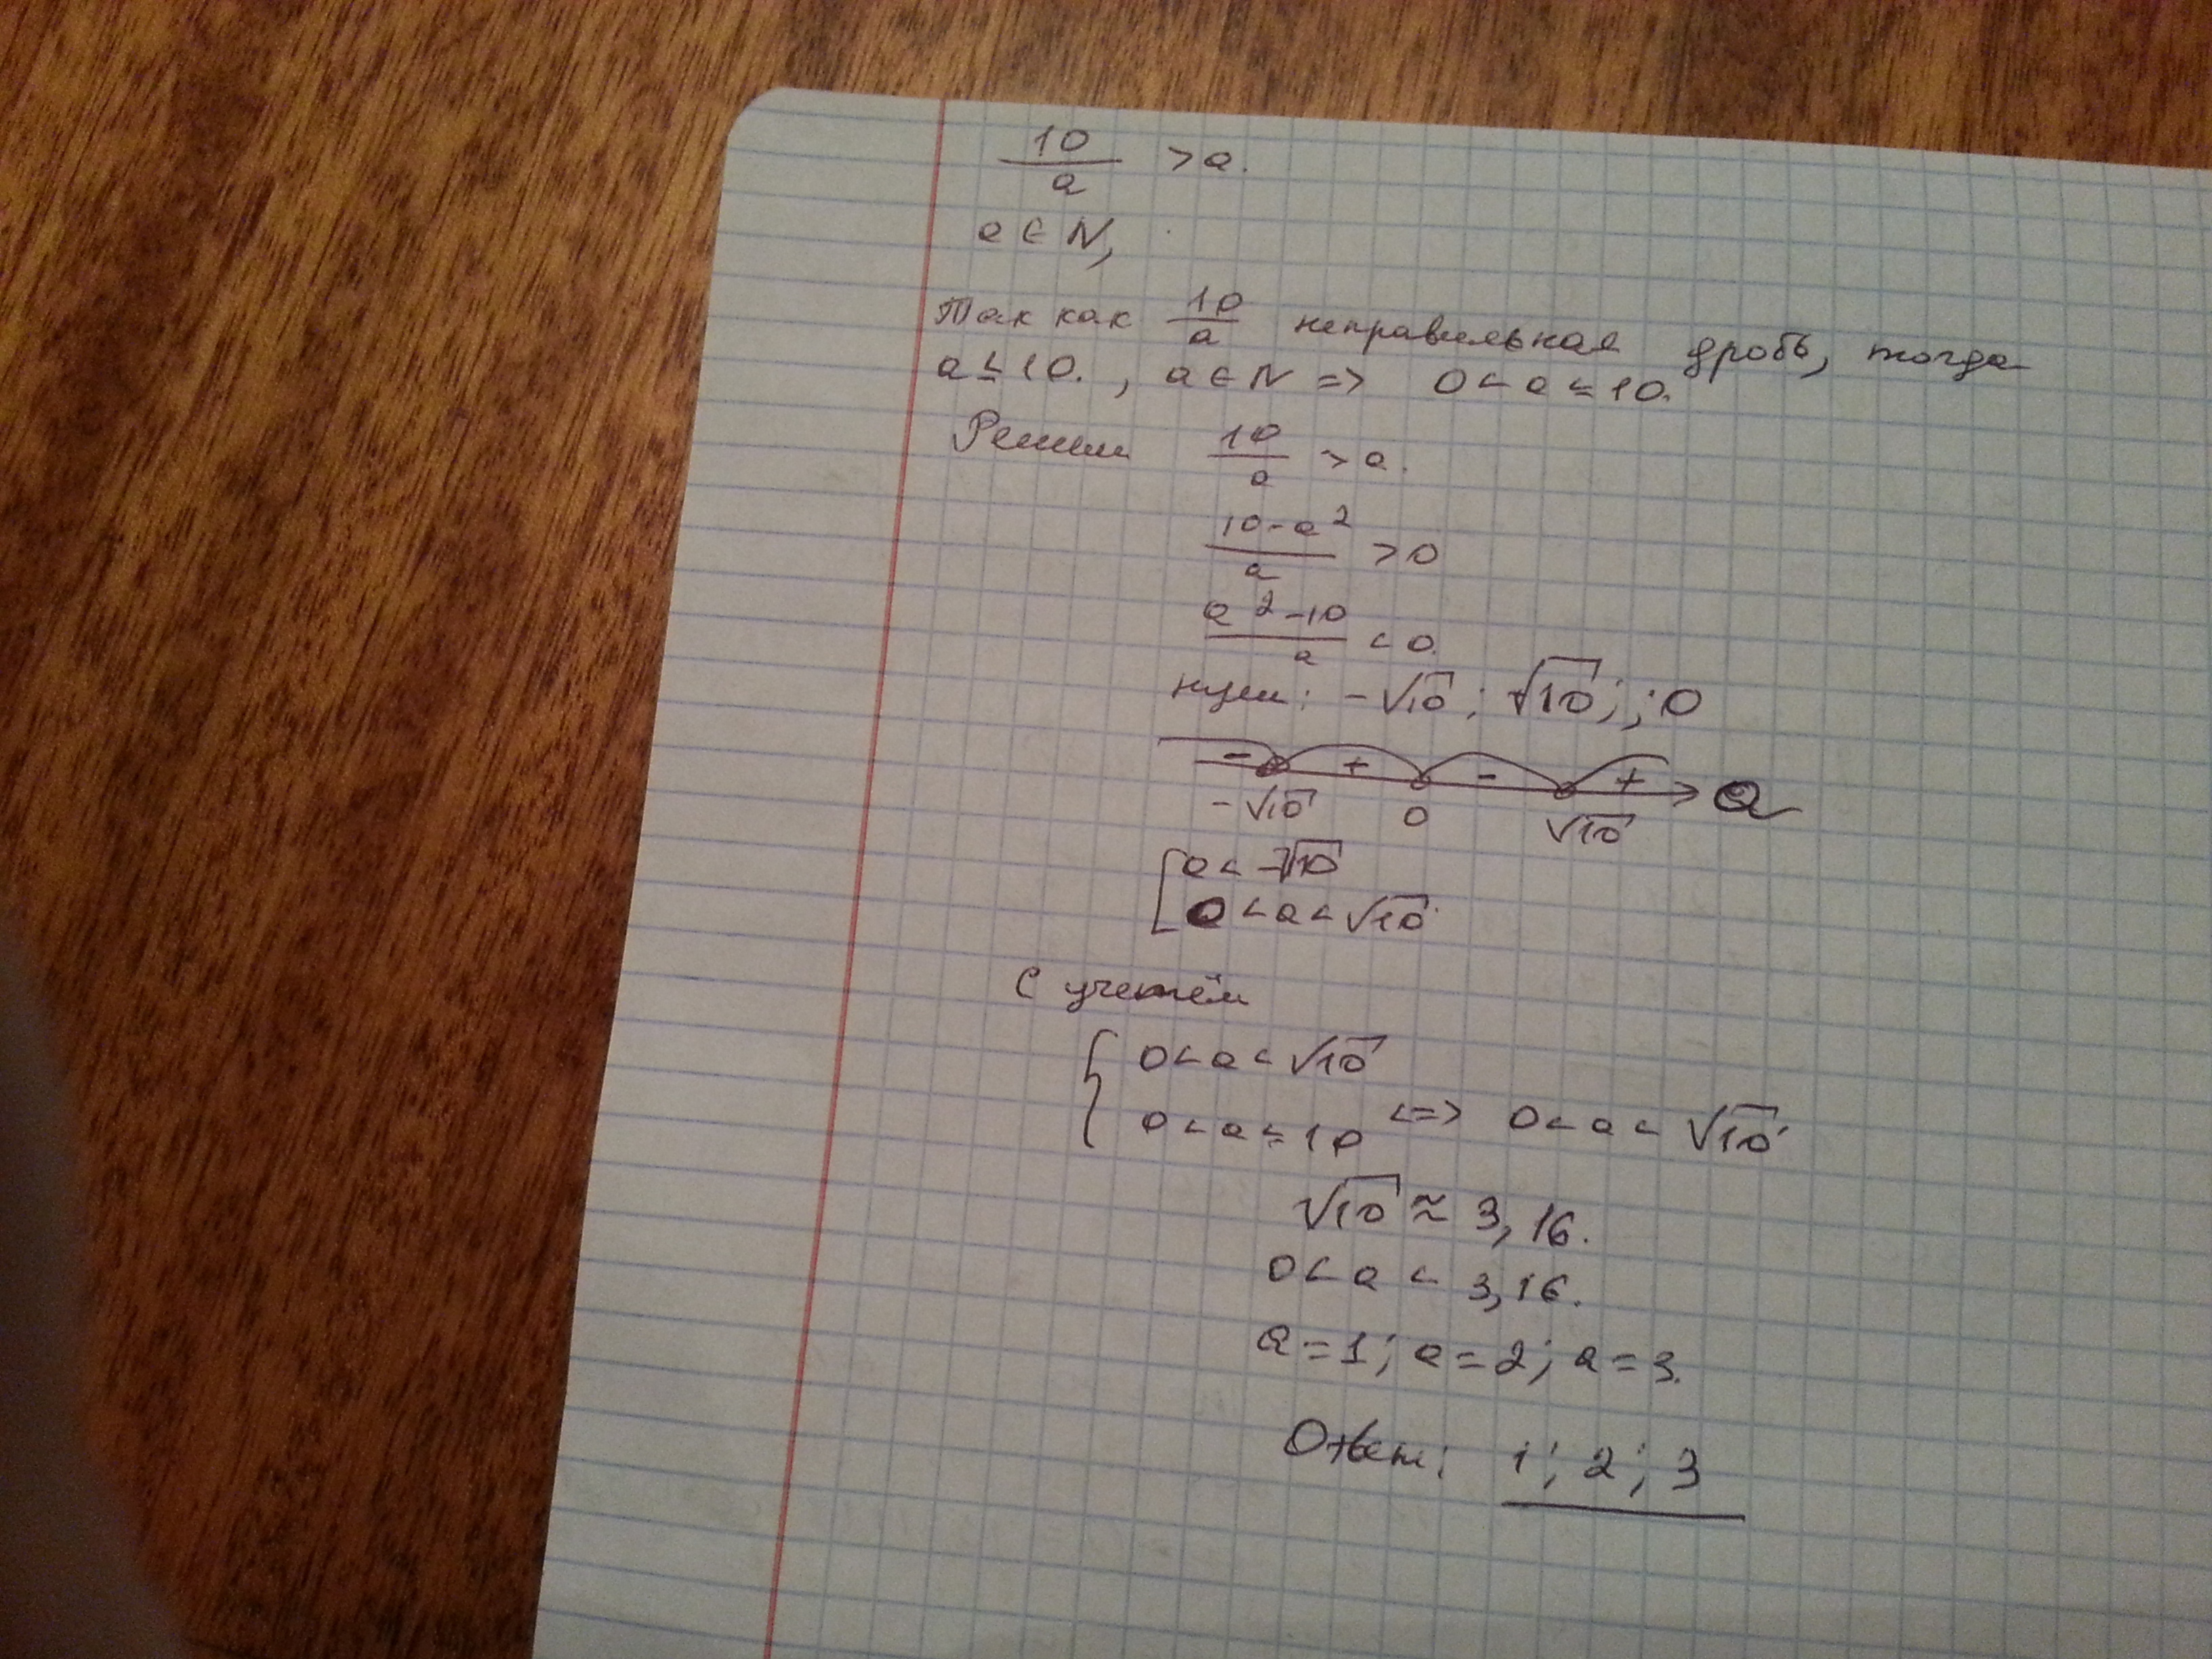 10/a > a.
a ∈ N,
Так как 10/a неправильная дробь, тогда
a ≤ 10. , a ∈ N => 0 < a ≤ 10.
Решим 10/a > a.
(10 - a²)/a > 0
(a² - 10)/a < 0.
нули: -√10 ; √10 ; ; 0
- + - + a
-√10 0 √10
[ a < -√10
0 < a < √10
С учетём
{ 0 < a < √10
0 < a ≤ 10 <=> 0 < a < √10
√10 ≈ 3,16.
0 < a < 3,16.
a = 1; a = 2; a = 3.
Ответ: 1; 2; 3